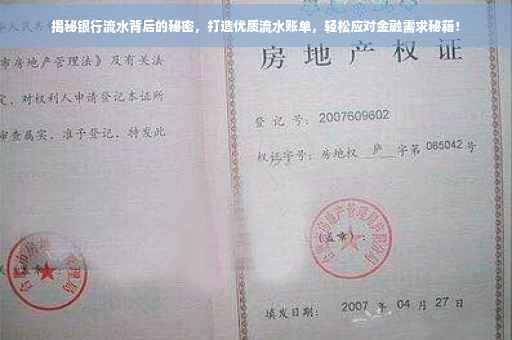 揭秘银行流水背后的秘密，打造优质流水账单，轻松应对金融需求秘籍！
市房地产管理法》及有关法
定，对权利人申请登记本证所
审查属实，准予登记，特发此
房地产权
登记号：2007609602
权证字号：房地权 庐 字第 085042 号
(盖章)：
填发日期：2007 年 04 月 27 日